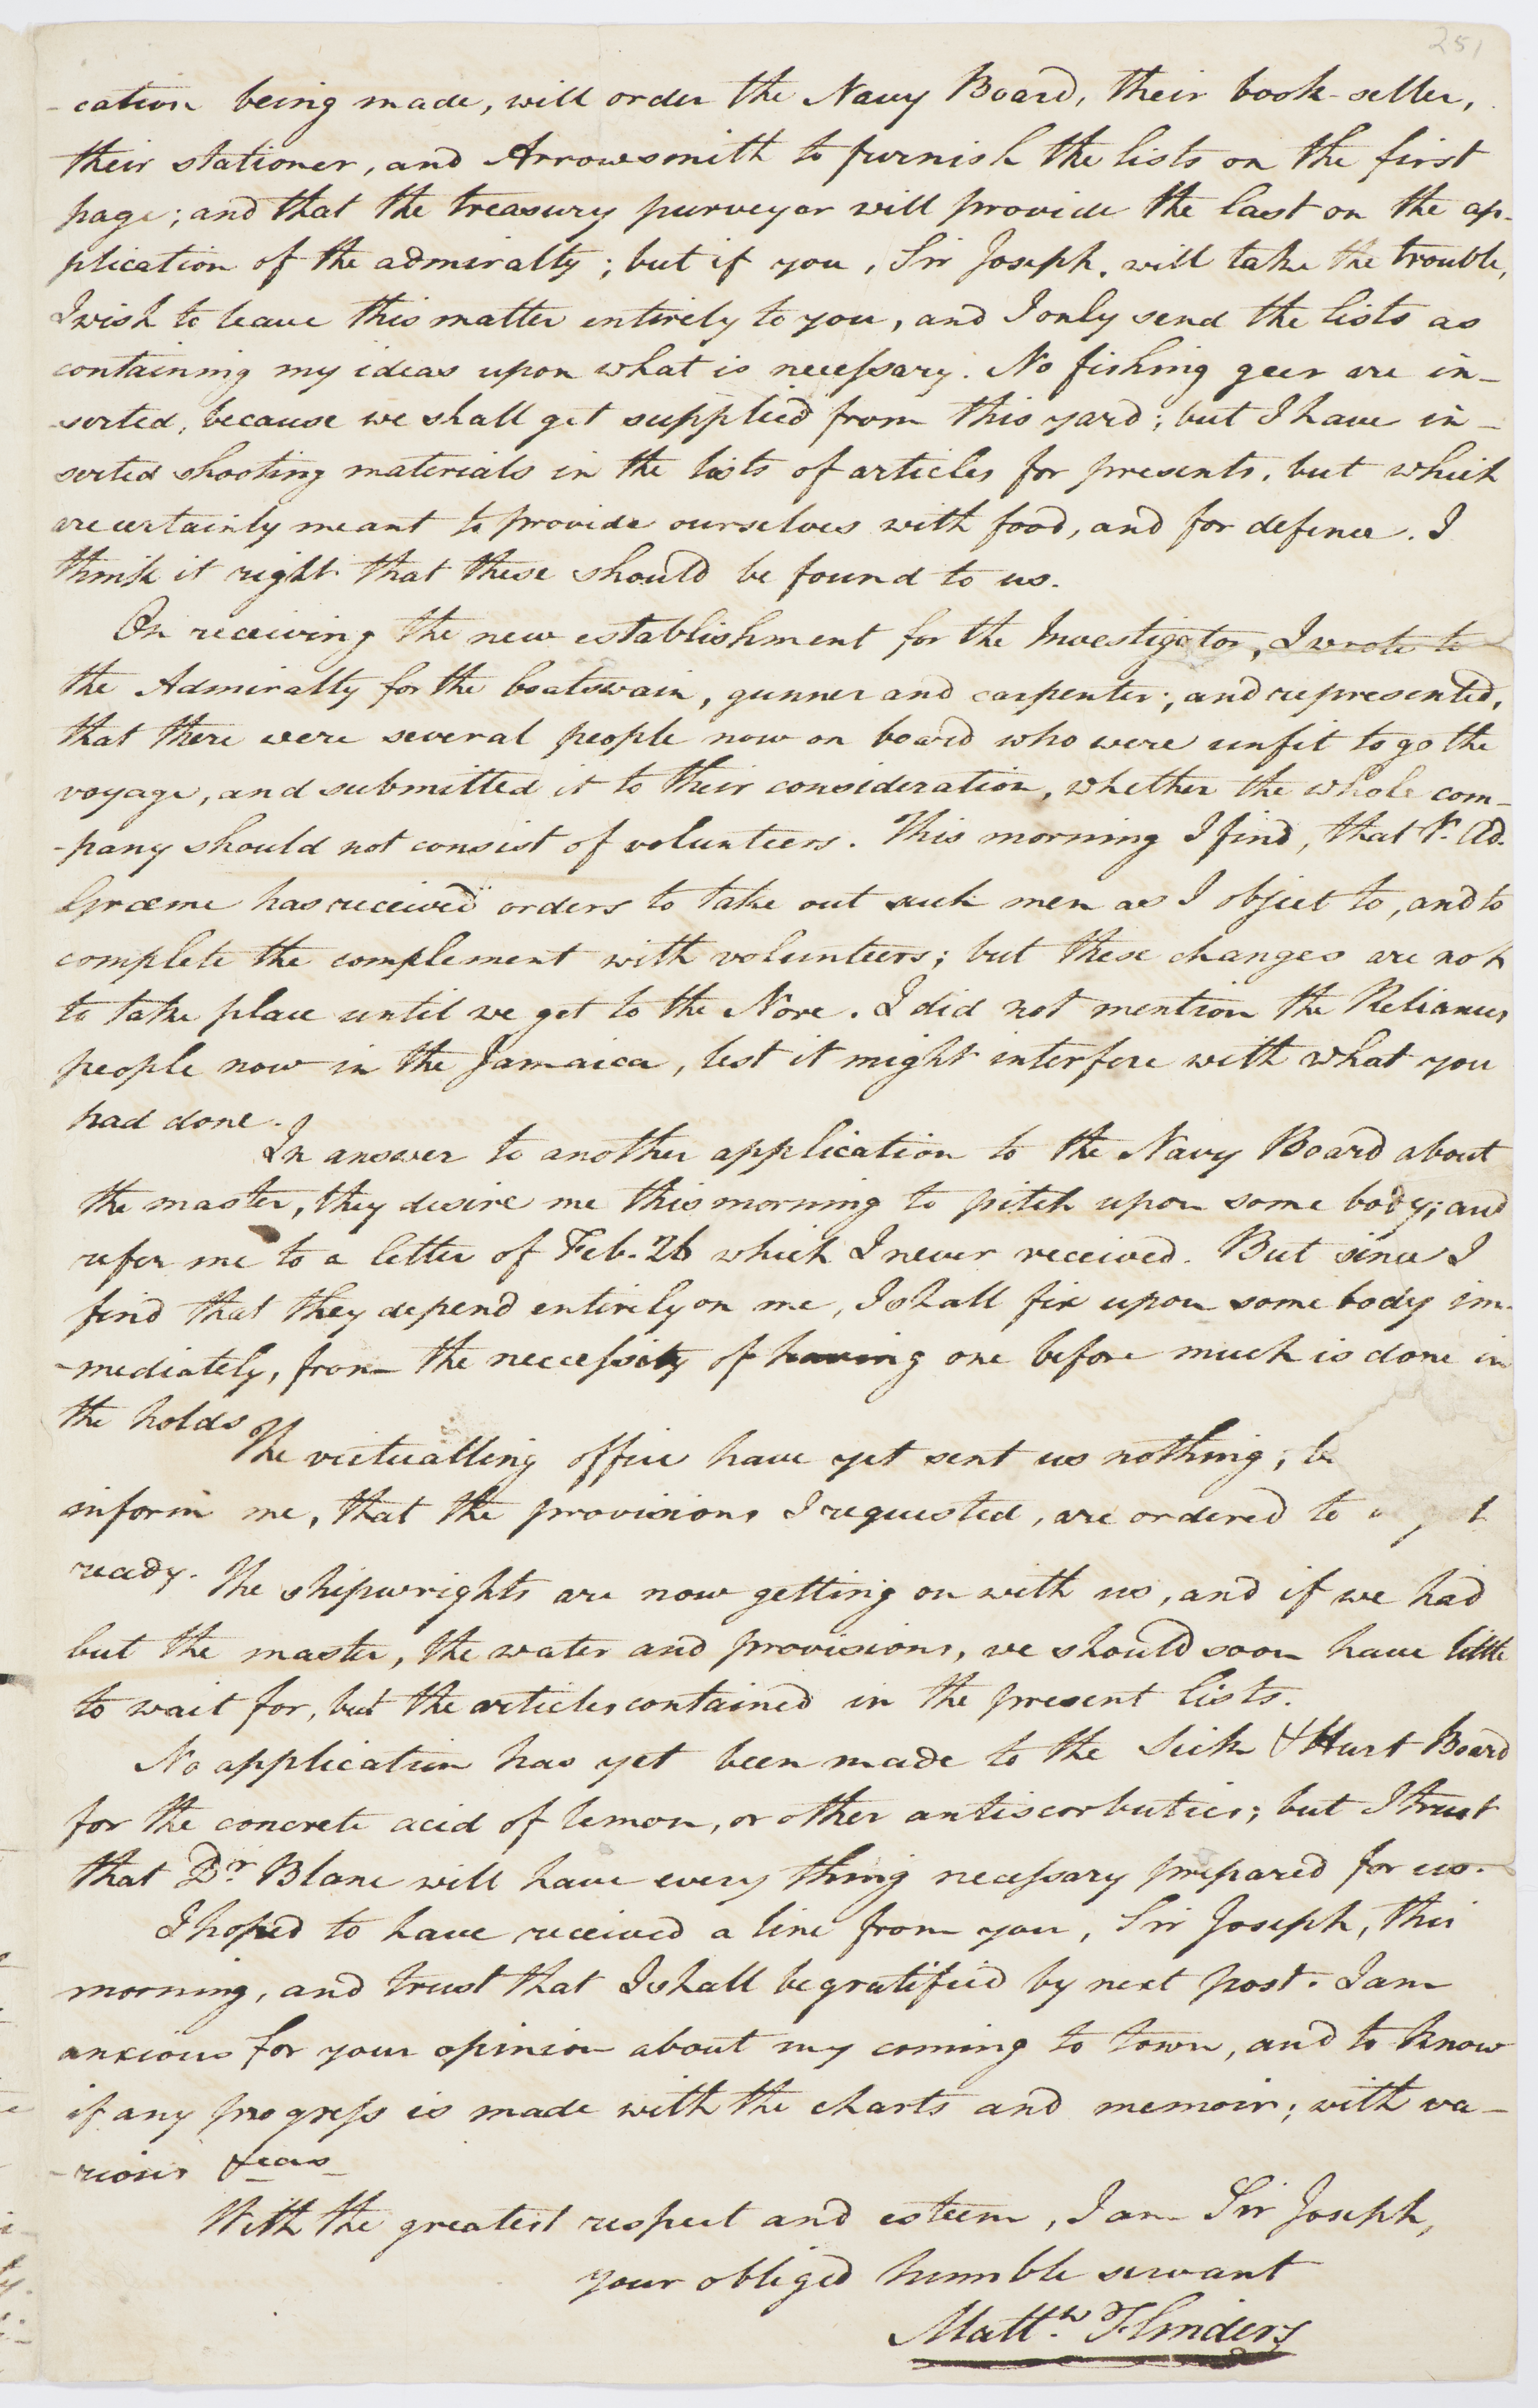 251
-cation being made, will order the Navy Board, their book-seller,
their stationer, and Arrowsmith to furnish the lists on the first
page; and that the treasury purveyor will provide the last on the ap-
plication of the admiralty; but if you, Sir Joseph, will take the trouble,
I wish to leave this matter entirely to you, and I only send the lists as
containing my ideas upon what is necessary. No fishing geer are in-
-serted, because we shall get supplied from this yard; but I have in-
serted shooting materials in the lists of articles for presents, but which
are certainly meant to provide ourselves with food, and for defence. I
think it right that these should be found to us.
On receiving the new establishment for the Investigator, I wrote to
the Admiralty for the boatswain, gunner and carpenter; and represented,
that there were several people now on board who were unfit to go the
voyage, and submitted it to their consideration, whether the whole com-
-pany should not consist of volunteers. This morning I find, that Ad.
Græme has received orders to take out such men as I object to, and to
complete the complement with volunteers; but these changes are not
to take place until we get to the Nore. I did not mention the Reliances
people now in the Jamaica, lest it might interfere with what you
had done.
In answer to another application to the Navy Board about
the master, they desire me this morning to pitch upon some body; and
refer me to a letter of Feb. 26 which I never received. But since I
find that they depend entirely on me, I shall fix upon some body im-
-mediately, from the neccessity of having one before much is done in
the holds
The victualling office have yet sent us nothing;
inform me, that the provisions I requested, are ordered to
ready. The shipwrights are now getting on with us, and if we had
but the master, the water and provisions, we should soon have little
to wait for, but the articles contained in the present lists.
No application has yet been made to the Sick & Hurt Board
for the concrete acid of lemon, or other antiscorbutics; but I trust
that Dr. Blane will have every thing necessary prepared for us.
I hoped to have received a line from you, Sir Joseph, this
morning, and trust that I shall be gratified by next post. I am
anxious for your opinion about my coming to town, and to know
if any progress is made with the charts and memoir; with va-
-rious &cas
With the greatest respect and esteem, I am Sir Joseph,
your obliged humble servant
Mattw. Flinders